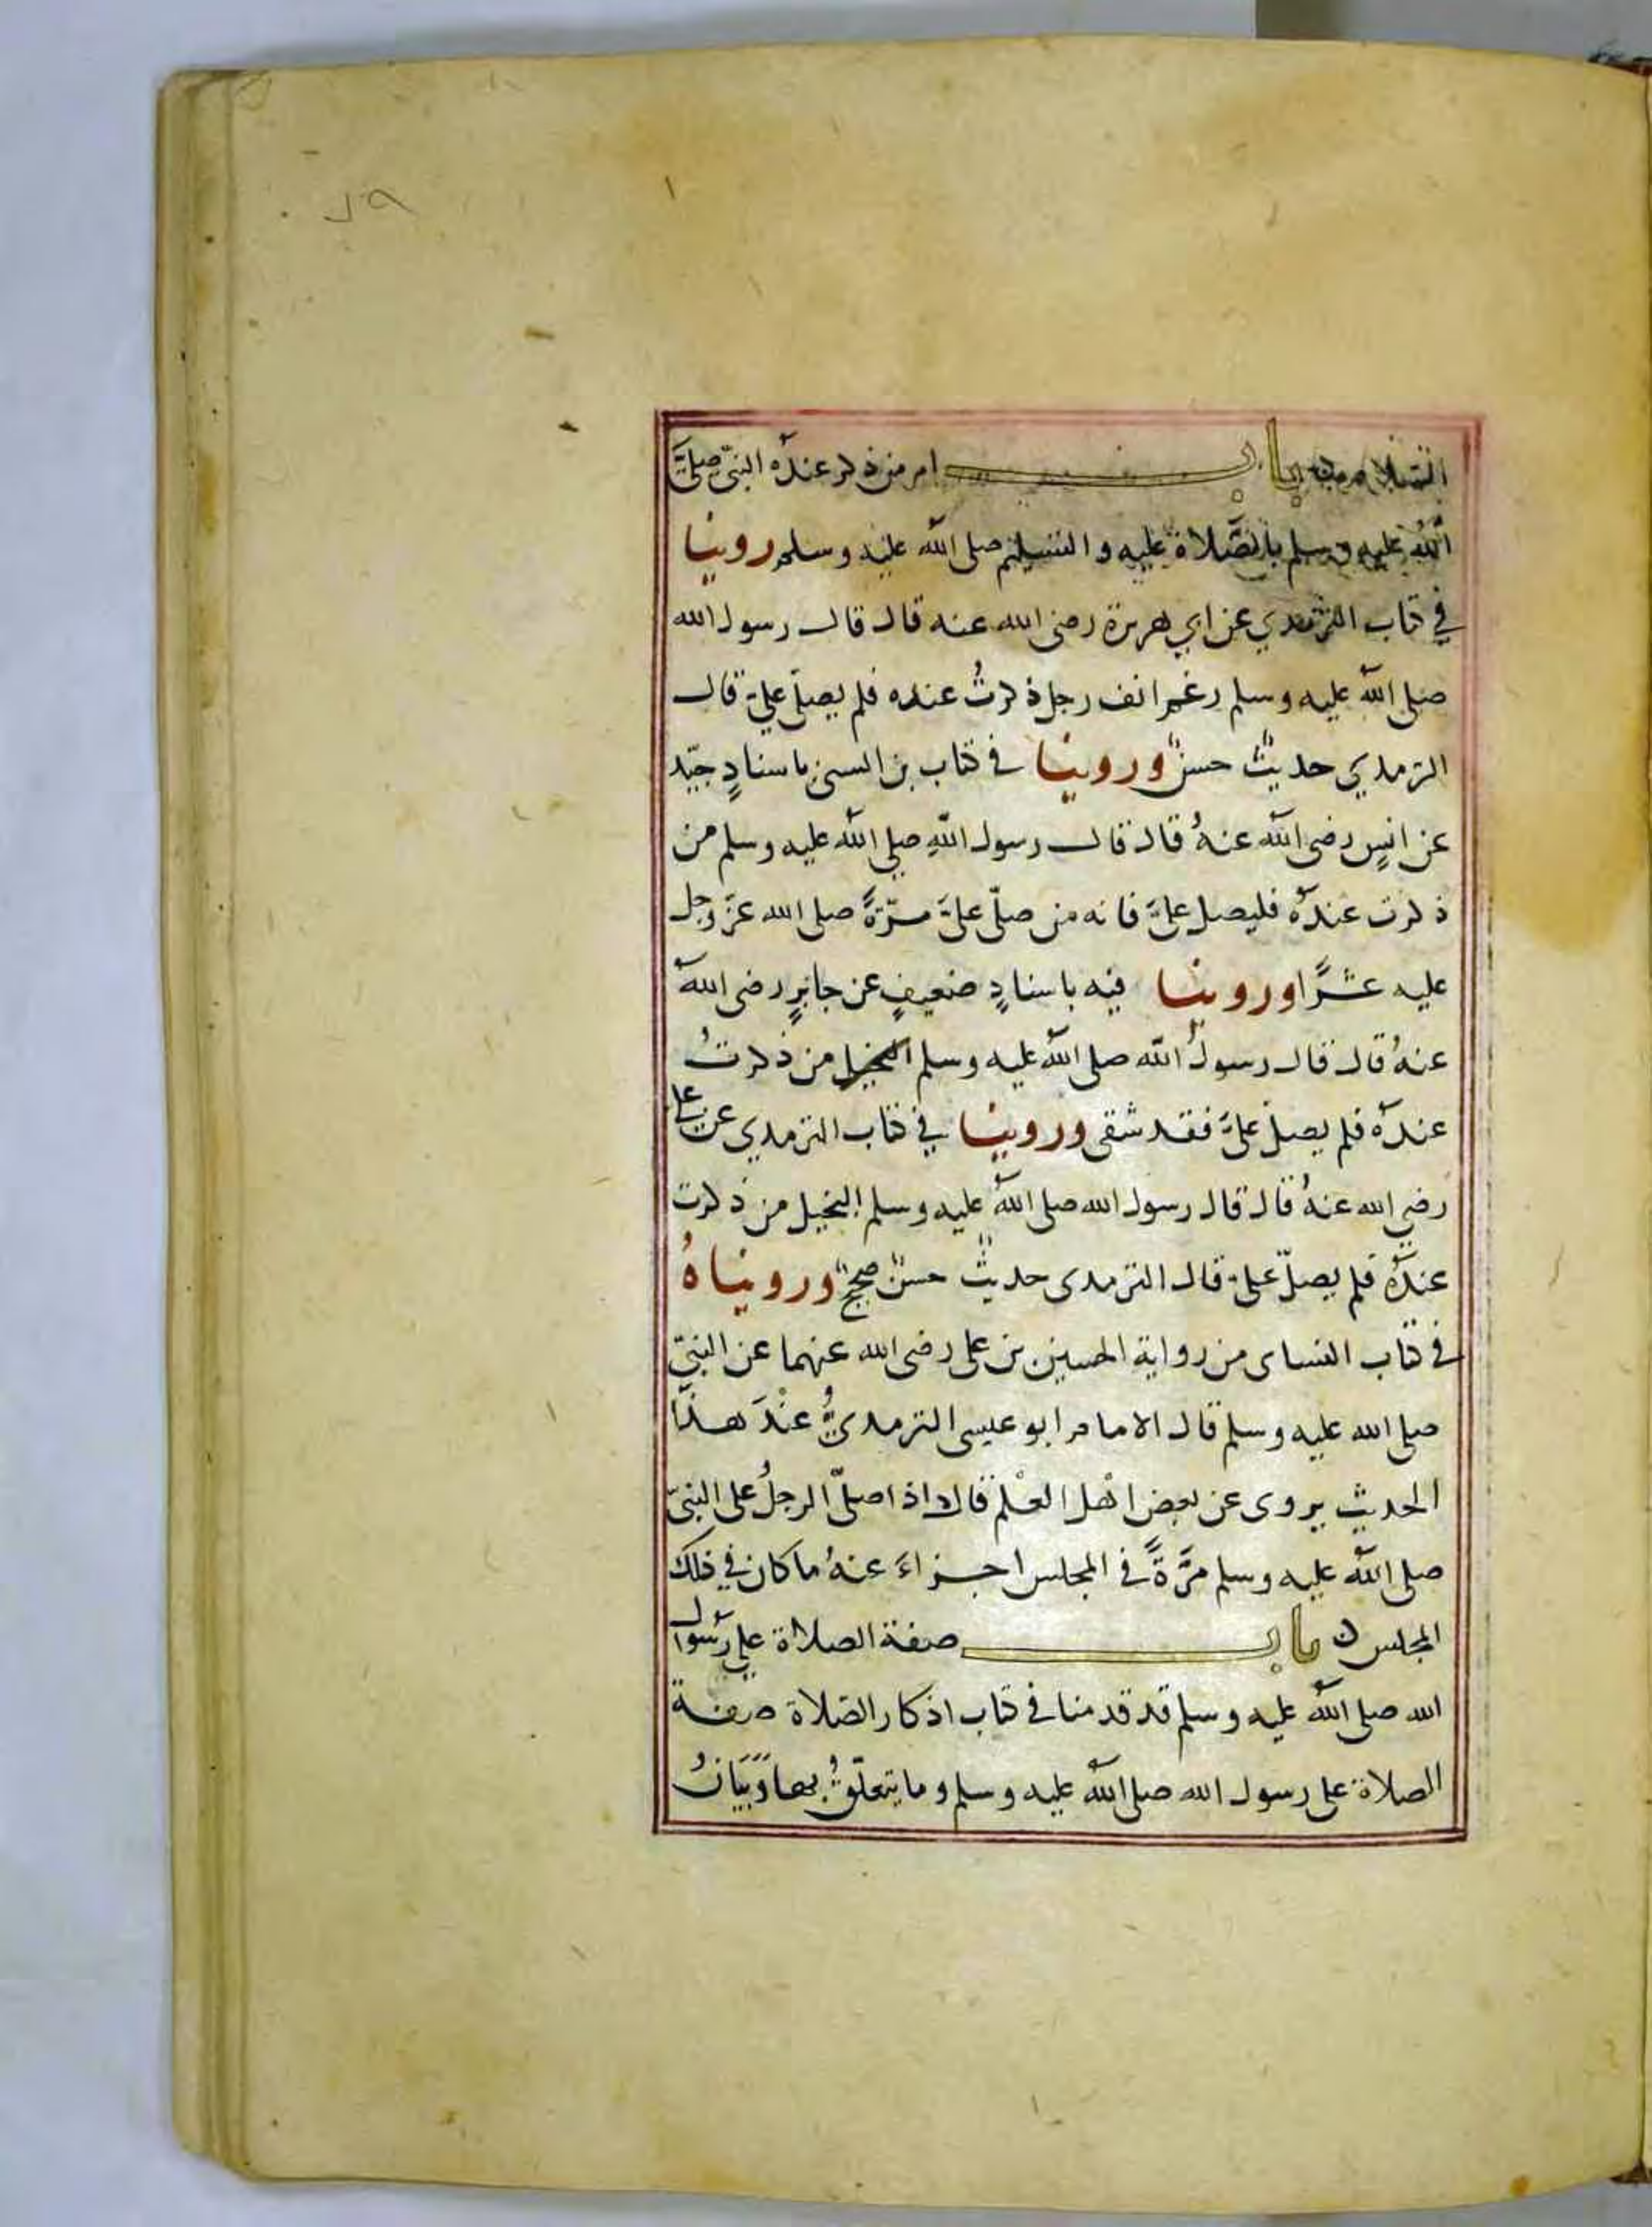 السلام باب امر من ذكر عنده النبي صلى
الله عليه وسلم بالصلاة عليه والتسليم صلى الله عليه وسلم روينا
في كتاب الترمدي عن ابي هريرة رضى الله عنه قال قال رسول الله
صلى الله عليه وسلم رغم انف رجل ذكرتُ عنده فلم يصلّ عليّ قال
الترمدي حديثٌ حسنٌ وروينا في كتاب بن السني باسنادٍ جيّد
عن انسٍ رضى الله عنهُ قال قال رسول اللهِ صلى الله عليه وسلم من
ذكرت عندهُ فليصل عليَّ فانه من صلّى عليَّ مرّةً صلى الله عزّ وجل
عليه عشرًا وروينا فيه باسنادٍ ضعيفٍ عن جابرٍ رضى الله
عنهُ قال قال رسولُ الله صلى الله عليه وسلم من ذكرتُ
عندهُ فلم يصلّ عليَّ فقد شقى وروينا في كتاب الترمدي عن علي
رضي الله عنهُ قال قال رسول الله صلى الله عليه وسلم البخيل من ذكرت
عندهُ فلم يصلّ عليّ قال الترمدى حديثٌ حسنٌ صحيحٌ ورويناهُ
في كتاب النساى من رواية الحسين بن على رضى الله عنهما عن النبيّ
صلى الله عليه وسلم قال الامام ابو عيسى الترمديُّ عنْدَ هذا
الحديث يروى عن بعض اهل العلم قال اذا صلّى الرجلُ على النبيّ
صلى الله عليه وسلم مرَّةً في المجلس اجزاءَ عنهُ ما كان في ذلك
المجلس ن باب صفة الصلاة على رسول
الله صلى الله عليه وسلم قد قدمنا في كتاب اذكار الصلاة صفة
الصلاة على رسول الله صلى الله عليه وسلم وما يتعلّقُ بها وَبَيَانُ